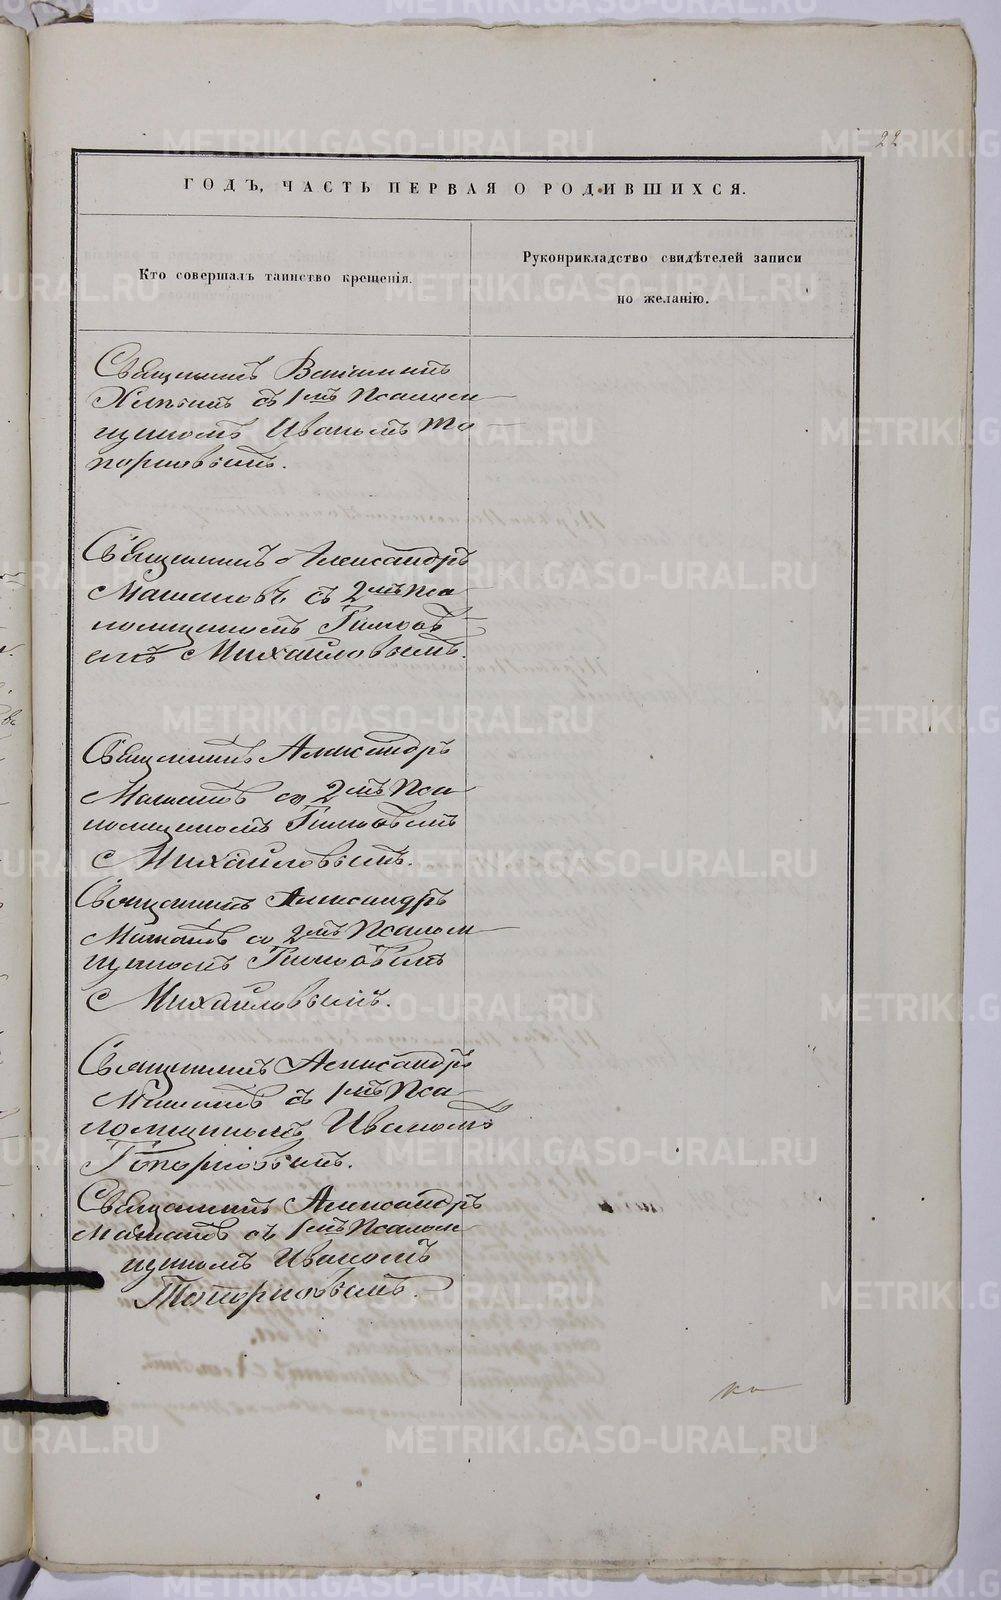 22
ГОДЪ, ЧАСТЬ ПЕРВАЯ О РОДИВШИХСЯ.
Кто совершалъ таинство крещенія.
Рукоприкладство свидѣтелей записи
по желанію.
Священникъ Веніаминъ
съ 1мъ Псалом
щикомъ Иваномъ То
порковымъ.
Священникъ Александръ
съ 2мъ Пса
ломщикомъ
Михайловымъ.
Священникъ Александръ
со 2мъ Пса
ломщикомъ
Михайловымъ.
Священникъ Александръ
со 2мъ Псалом
щикомъ
Михайловымъ.
Священникъ Александръ
съ 1мъ Пса
ломщикомъ Иваномъ
Топорковымъ.
Священникъ Александръ
съ 1мъ Псалом
щикомъ Иваномъ
Топорковымъ.
METRIKI.GASO-URAL.RU